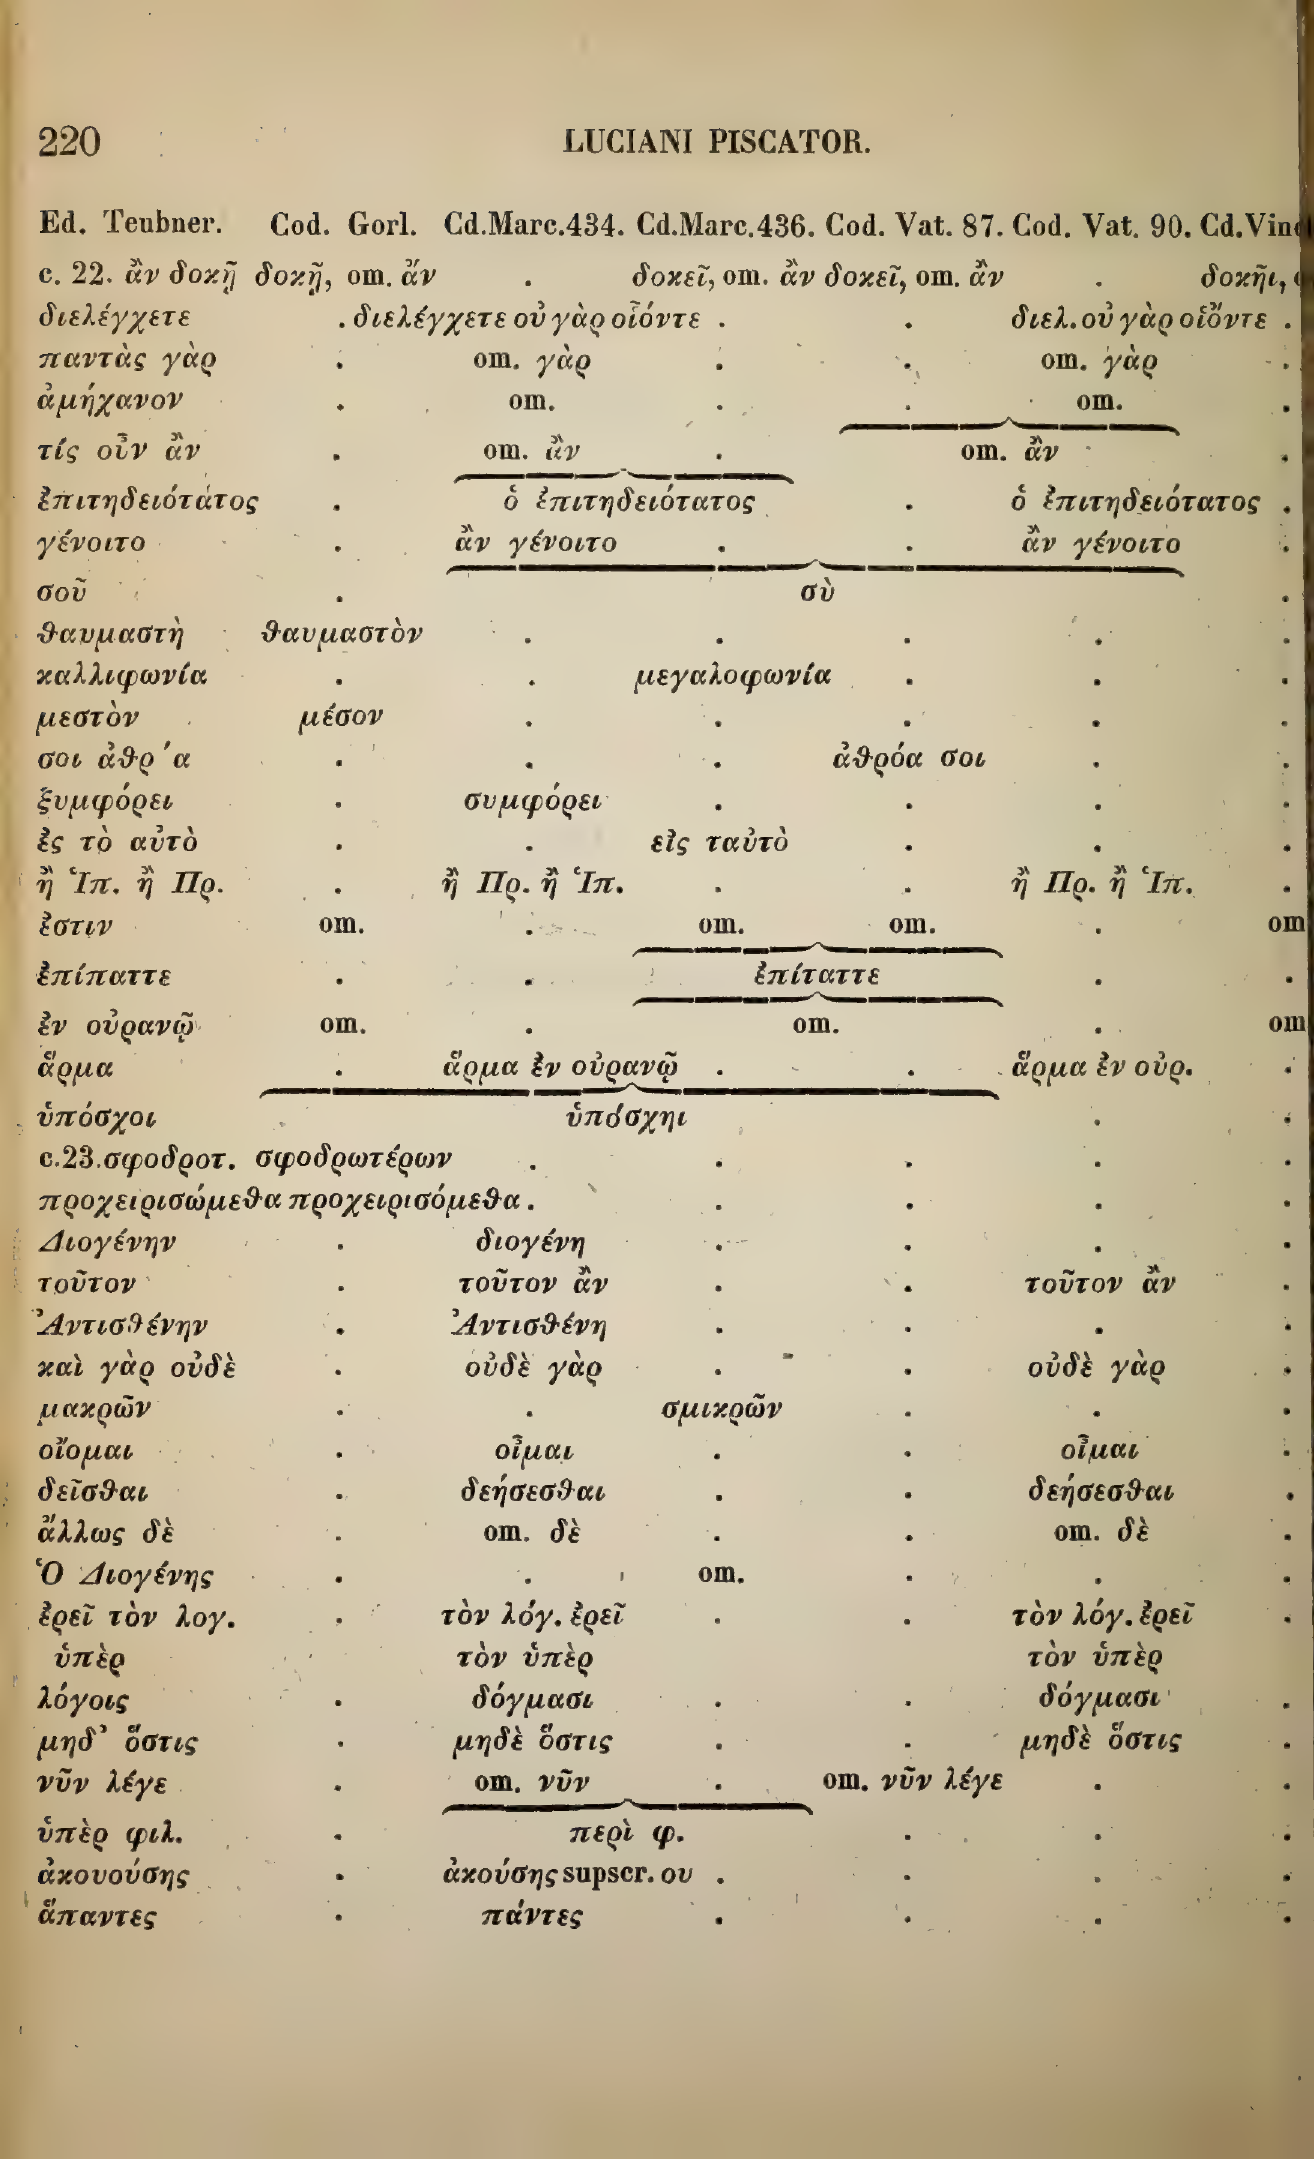 220 LUCIANI PISCATOR.
Ed. Teubner. Cod. Gorl. Cd.Marc.434. Cd.Marc.436. Cod. Vat. 87. Cod. Vat. 90.
c. 22. ἂν δοκῇ δοκῇ, om. ἄν . δοκεῖ, om. ἂν δοκεῖ, om. ἂν . δοκῆι,
διελέγχετε . διελέγχετε οὐ γὰρ οἷόντε . . διελ. οὐ γὰρ οἷὄντε .
παντὰς γὰρ . om. γὰρ . . om. γὰρ .
ἀμήχανον . om. . . om. .
τίς οὖν ἂν . om. ἂν . om. ἂν .
ἐπιτηδειότατος . ὁ ἐπιτηδειότατος . ὁ ἐπιτηδειότατος .
γένοιτο . ἂν γένοιτο . . ἂν γένοιτο .
σοῦ . σὺ .
θαυμαστὴ θαυμαστὸν . . . . .
καλλιφωνία . . μεγαλοφωνία . . .
μεστὸν μέσον . . . . .
σοι ἀθρ'α . . . ἀθρόα σοι . .
ξυμφόρει . συμφόρει . . . .
ἐς τὸ αὐτὸ . . εἰς ταὐτὸ . . .
ἢ Ἱπ. ἢ Πρ. . ἢ Πρ. ἢ Ἱπ. . . ἢ Πρ. ἢ Ἱπ. .
ἐστιν om. . om. om. . om
ἐπίπαττε . . ἐπίταττε . .
ἐν οὐρανῷ om. . om. . om
ἅρμα . ἅρμα ἐν οὐρανῷ . . ἅρμα ἐν οὐρ. .
ὑπόσχοι ὑπόσχηι . .
c.23.σφοδροτ. σφοδρωτέρων . . . . .
προχειρισώμεθα προχειρισόμεθα . . . . .
Διογένην . διογένη . . . .
τοῦτον . τοῦτον ἂν . . τοῦτον ἂν .
Ἀντισθένην . Ἀντισθένη . . . .
καὶ γὰρ οὐδὲ . οὐδὲ γὰρ . . οὐδὲ γὰρ .
μακρῶν . . σμικρῶν . . .
οἴομαι . οἶμαι . . οἶμαι .
δεῖσθαι . δεήσεσθαι . . δεήσεσθαι .
ἄλλως δὲ . om. δὲ . . om. δὲ .
Ὁ Διογένης . . om. . . .
ἐρεῖ τὸν λογ. . τὸν λόγ. ἐρεῖ . . τὸν λόγ. ἐρεῖ .
ὑπὲρ τὸν ὑπὲρ τὸν ὑπὲρ
λόγοις . δόγμασι . . δόγμασι .
μηδ’ ὅστις . μηδὲ ὅστις . . μηδὲ ὅστις .
νῦν λέγε . om. νῦν . om. νῦν λέγε . .
ὑπὲρ φιλ. . περὶ φ. . . .
ἀκουούσης . ἀκούσης supscr. ου . . . .
ἅπαντες . πάντες . . . .